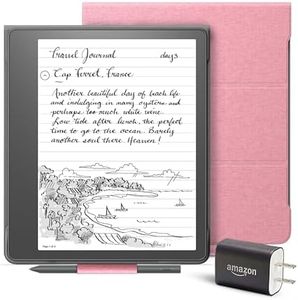 Travel Journal day 3
Cap Ferret, France
Another beautiful day of beach life
and indulging in many oysters and
perhaps too much white wine.
Low tide after lunch, the perfect
time to go to the ocean. Barely
another soul there. Heaven!
amazon